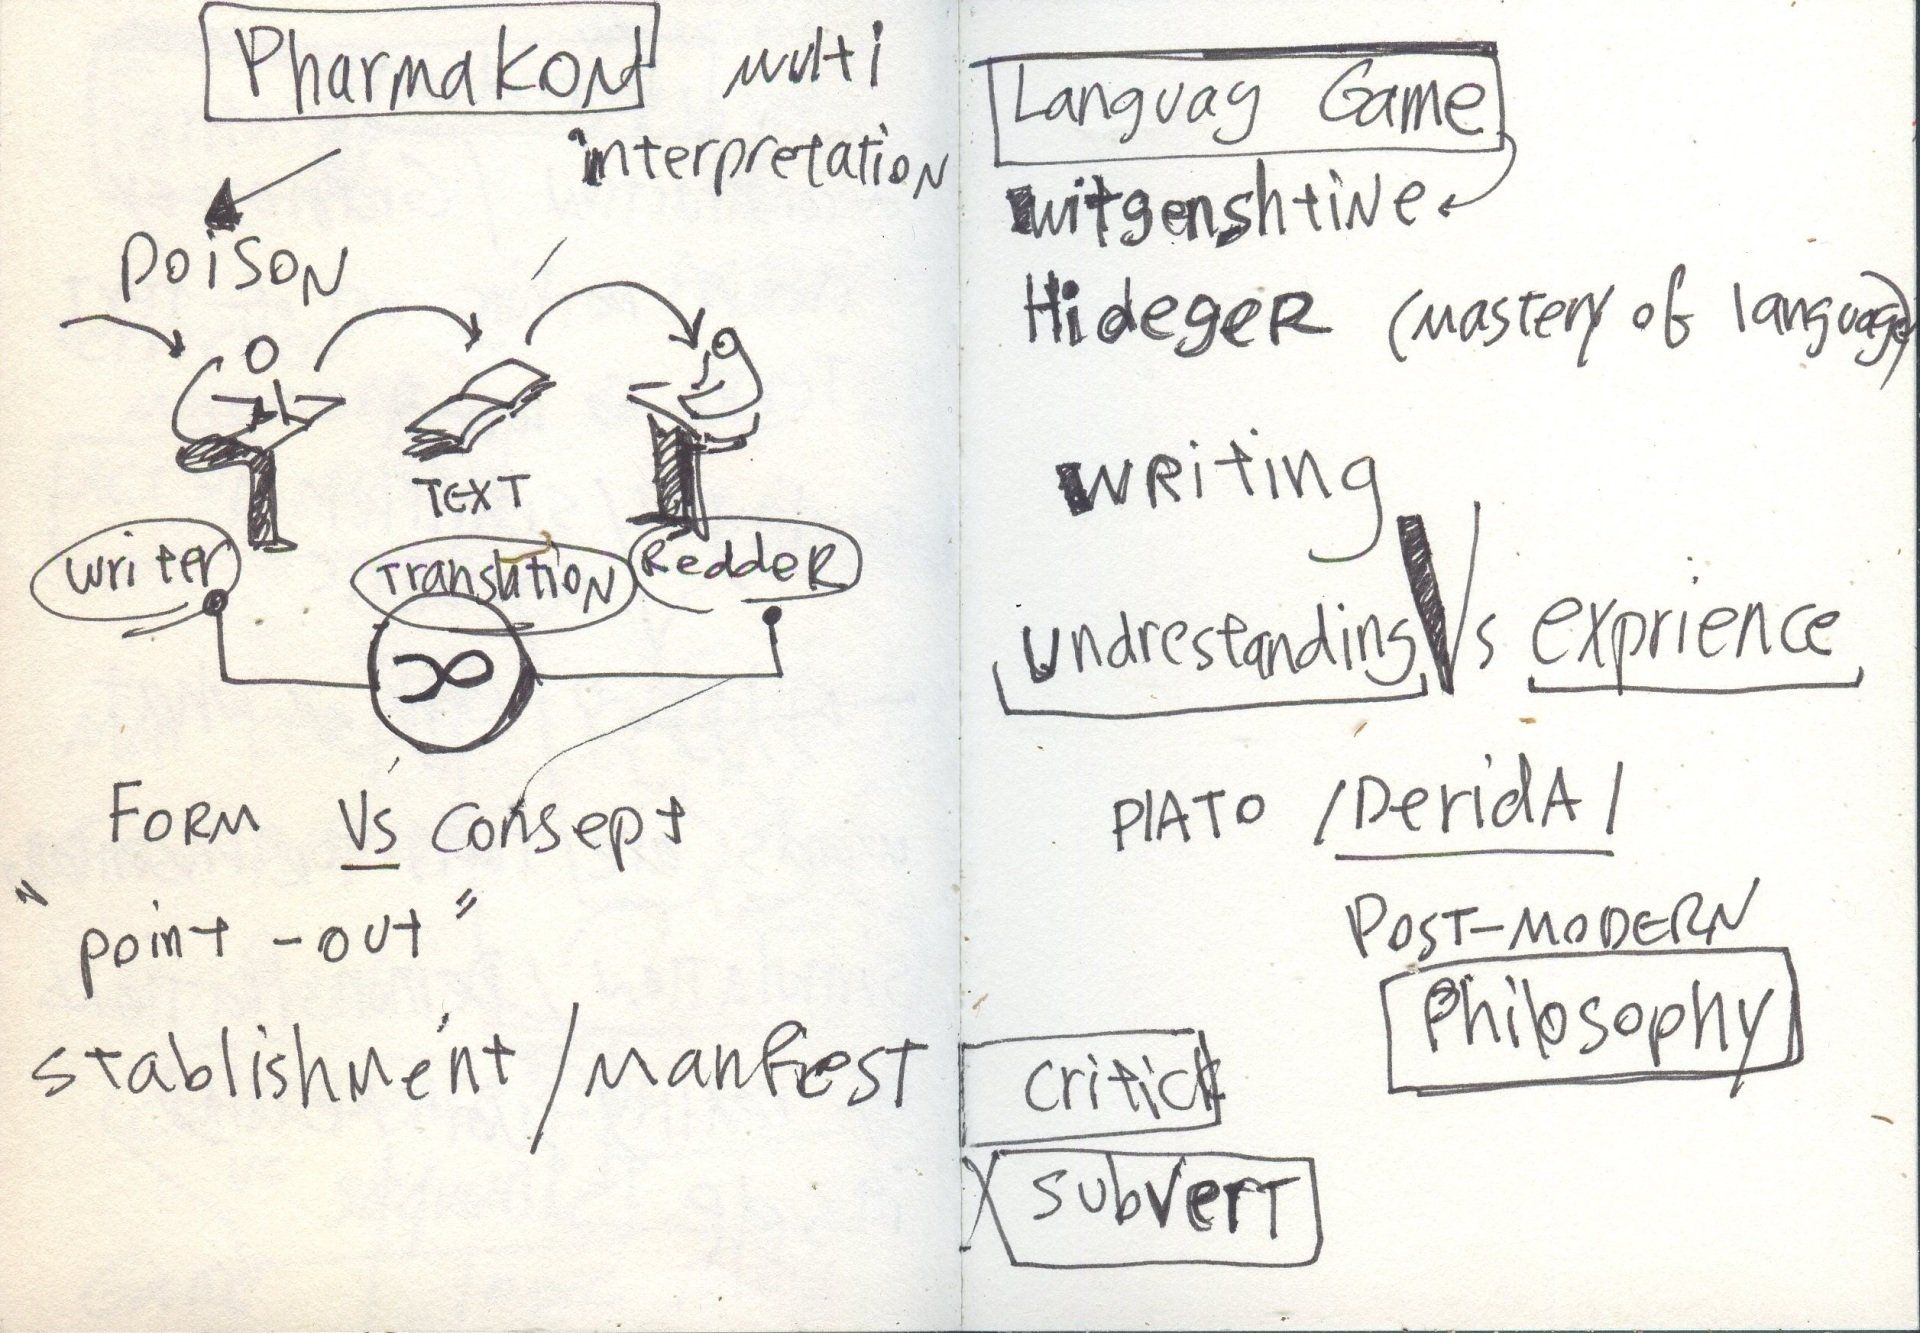 Pharmakon multi
interpretation
Poison
TEXT
writer
Translation
Redder
Form Vs Consept
"point-out"
stablishment / Manfiest
Languag Game
witgenshtine
HidegeR (mastery of language)
WRiting
undrestanding Vs exprience
PlATO / DeridA /
POST-MODERN
Philosophy
critick
subvert